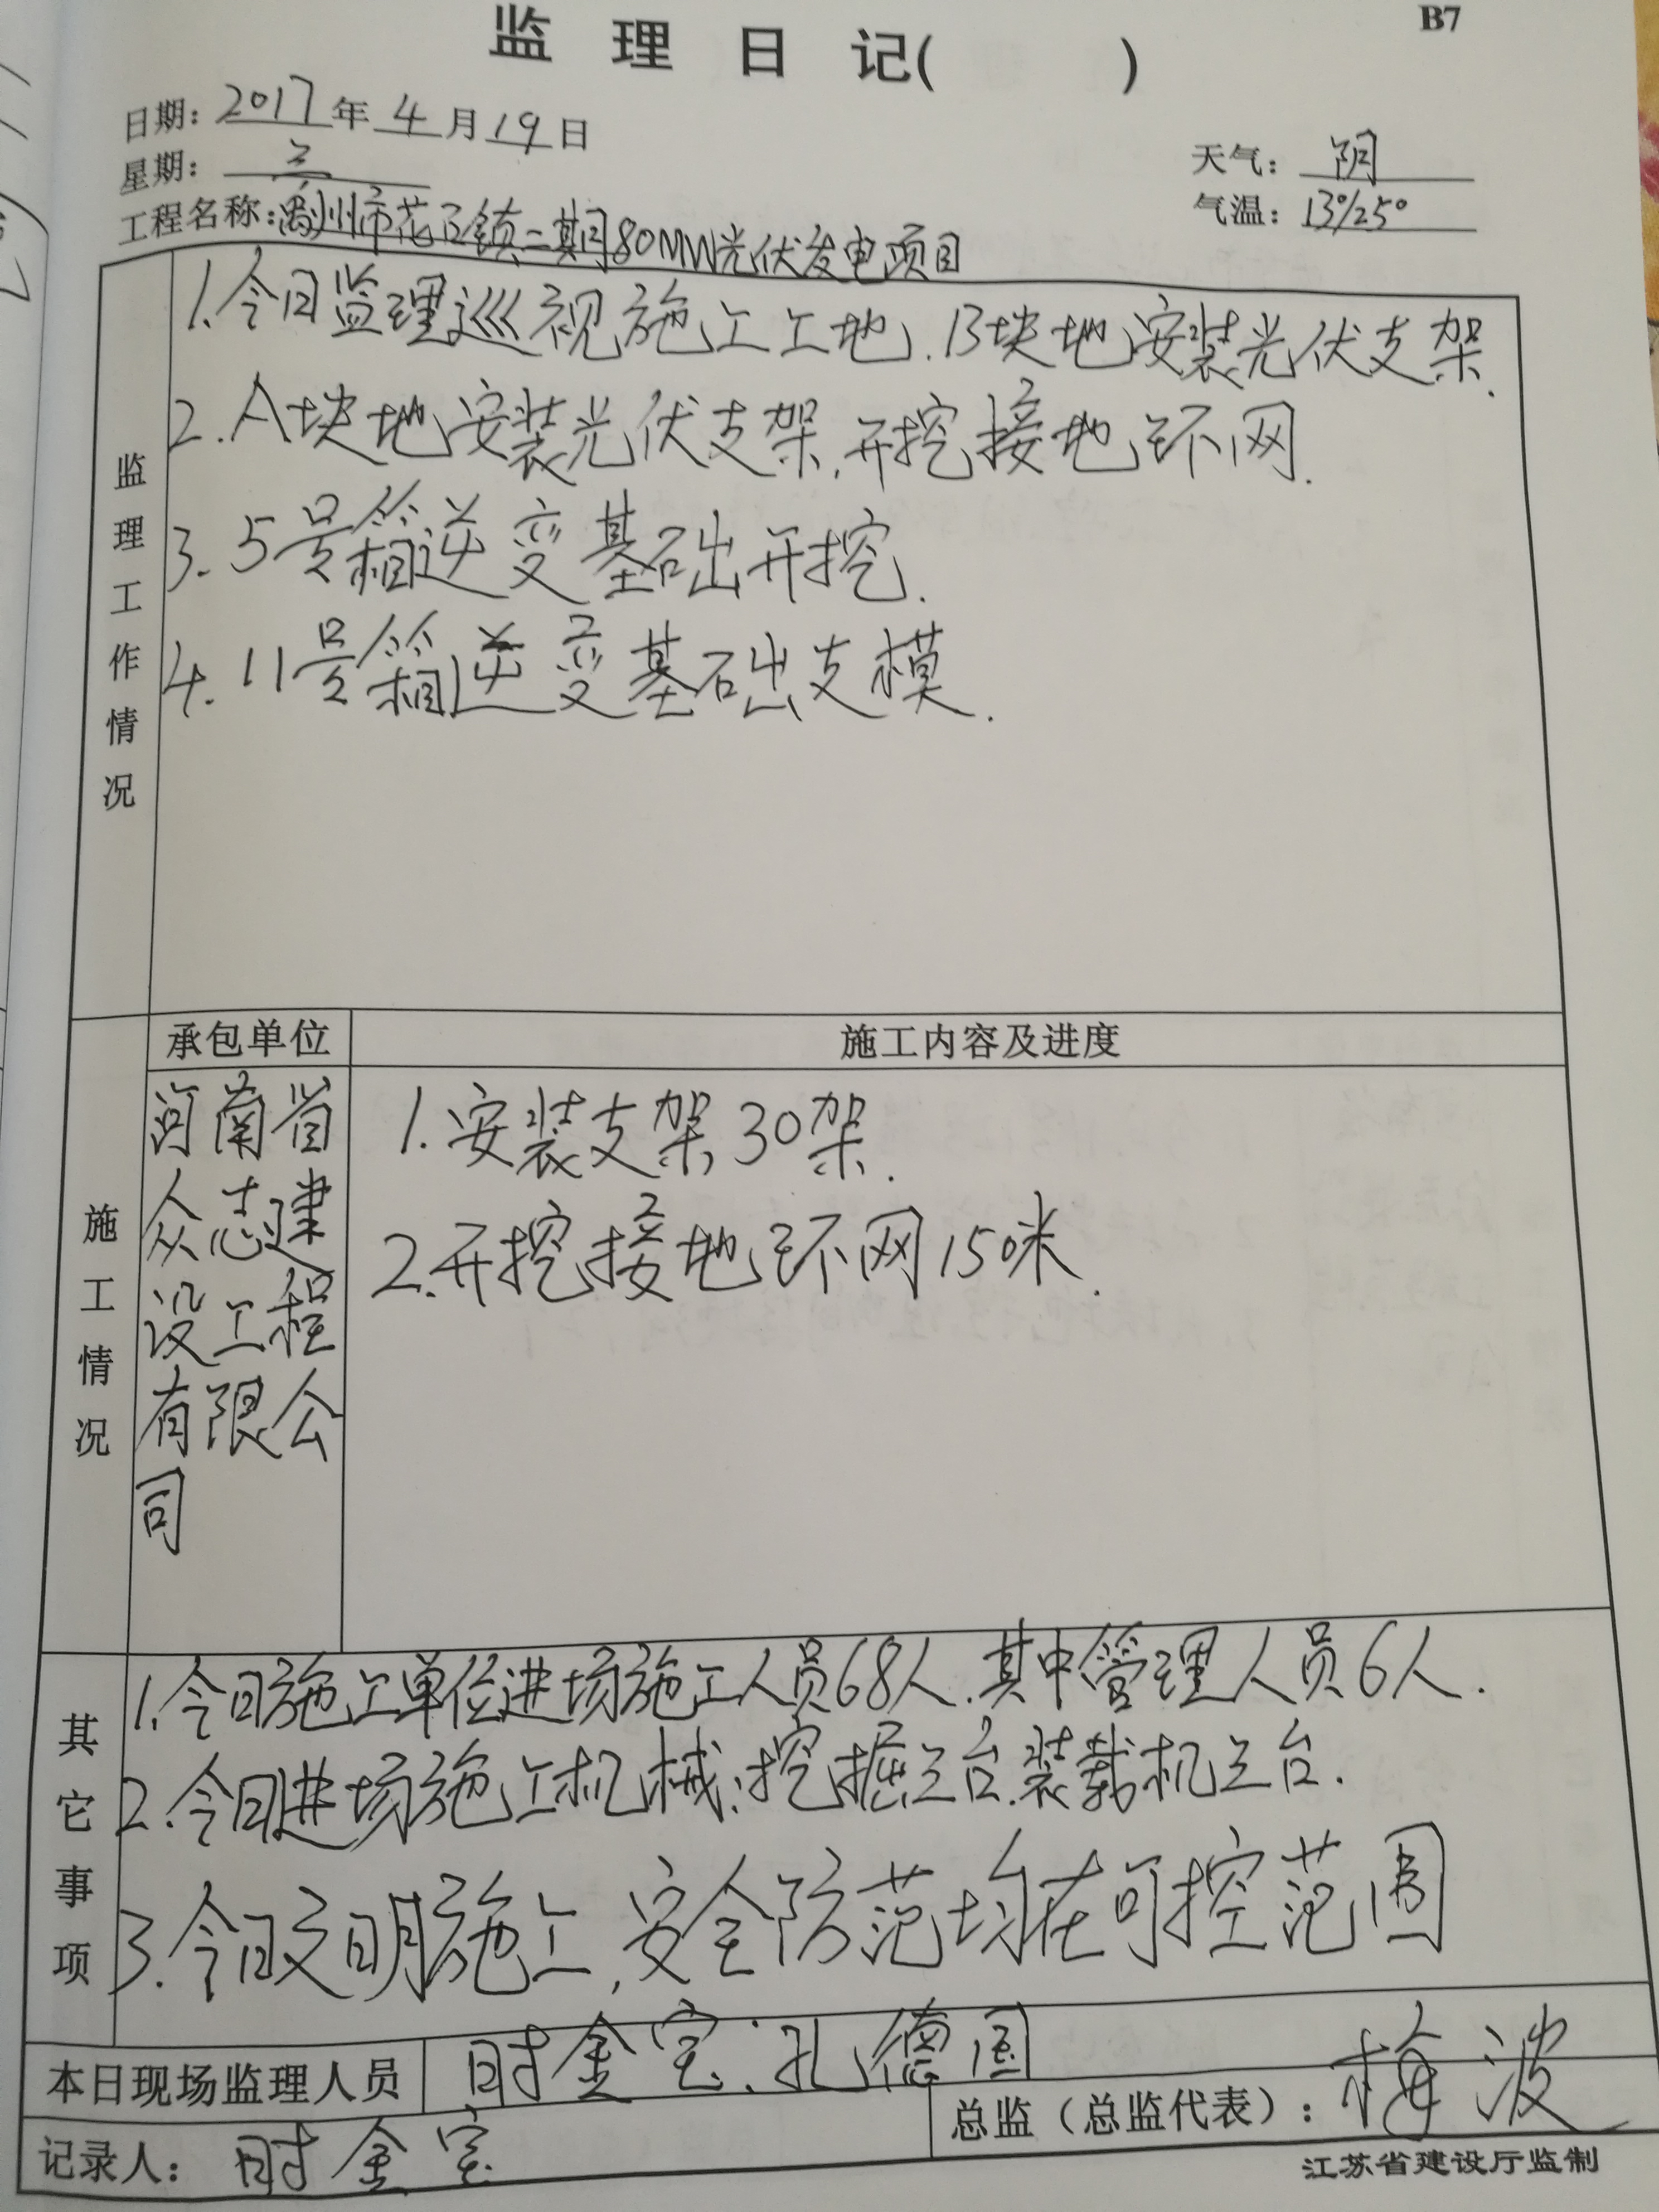 B7
监 理 日 记( )
日期: 2017 年 4 月 19 日
星期: 三
天气: 阴
气温: 13°/25°
工程名称: 禹州市花石镇二期80MW光伏发电项目
监理工作情况
1.今日监理巡视施工工地.B块地安装光伏支架.
2.A块地安装光伏支架,开挖接地环网.
3.5号箱逆变基础开挖.
4.11号箱逆变基础支模.
施工情况
承包单位
施工内容及进度
河南省
众志建
设工程
有限公
司
1.安装支架30架.
2.开挖接地环网150米.
其它事项
1.今日施工单位进场施工人员68人.其中管理人员6人.
2.今日进场施工机械:挖掘三台.装载机三台.
3.今日文明施工,安全防范均在可控范围
本日现场监理人员 时金宝.孔德国
总监(总监代表): 梅波
记录人: 时金宝
江苏省建设厅监制